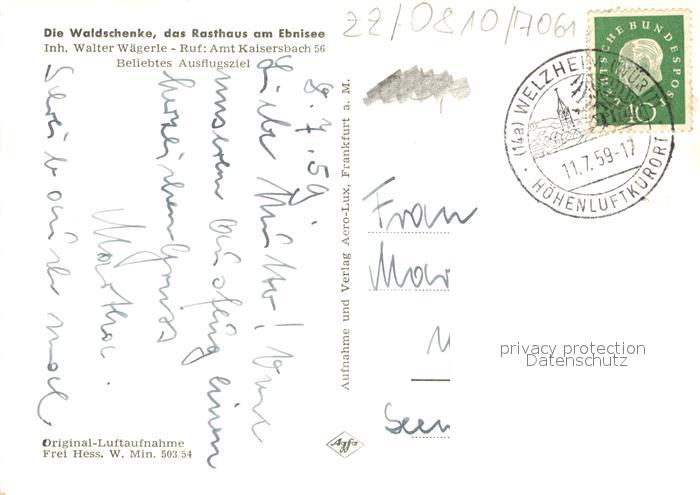 Die Waldschenke, das Rasthaus am Ebnisee
Inh. Walter Wägerle - Ruf: Amt Kaisersbach 56
Beliebtes Ausflugsziel
22/0810/7061
DEUTSCHE BUNDESPOST
10
(14a) WELZHEIM
11.7.59-17
HÖHENLUFTKURORT
8.7.59
Liebe Mutter! Von
unserem Ausflug einen
herzlichen Gruss
Martha.
Aufnahme und Verlag Aero-Lux, Frankfurt a. M.
Frau
privacy protection
Datenschutz
Original-Luftaufnahme
Frei Hess. W. Min. 503/54
Agfa